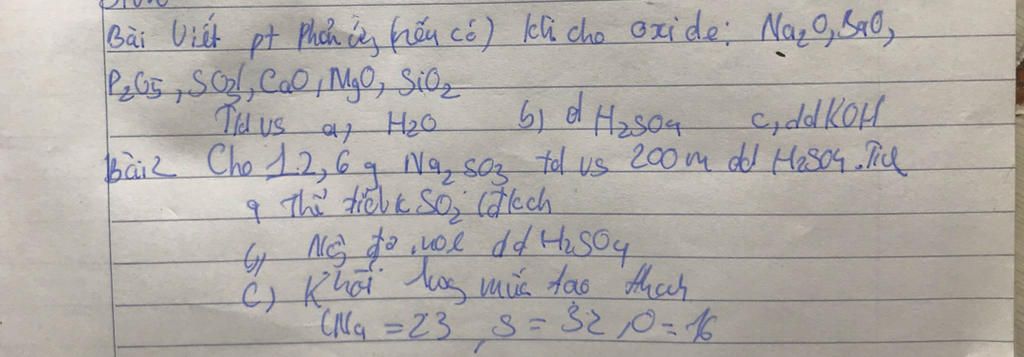 Bài Viết pt phản ứng (nếu có) khi cho oxide: Na2O, BaO,
P2O5, SO2, CaO, MgO, SiO2
Td vs a, H2O b) d H2SO4 c, dd KOH
Bài 2 Cho 12,6 g Na2SO3 td vs 200 m dd H2SO4. Tìd
a Thể tích k SO2 (đkch
b) Nồg độ mol dd H2SO4
C) Khối lượg muối tạo thàh
(Na = 23, S = 32, O = 16